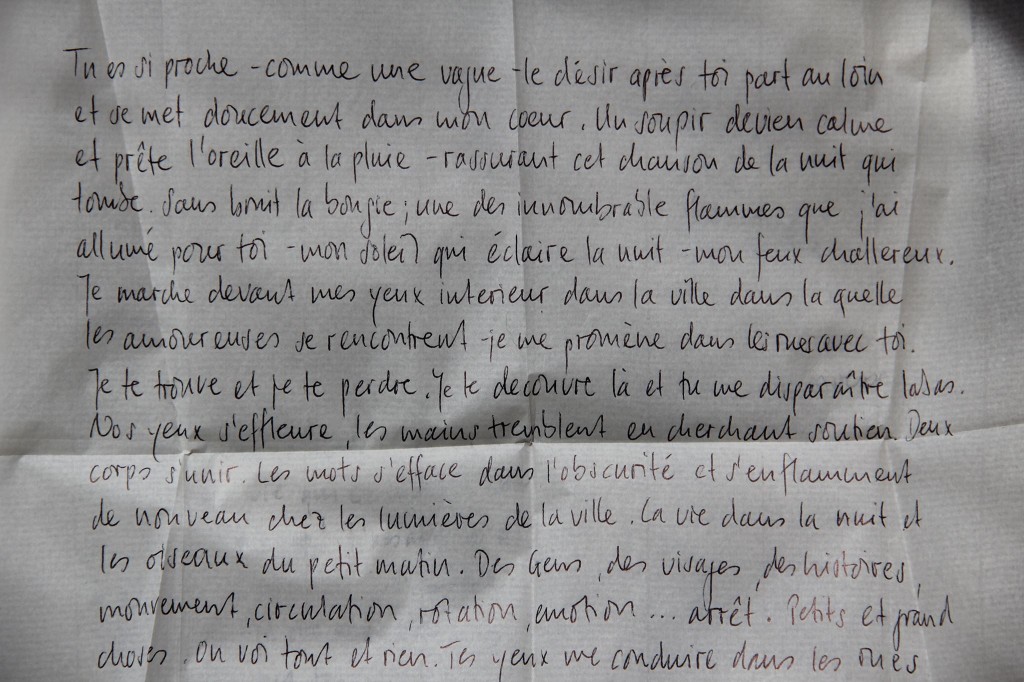 Tu es si proche - comme une vague - le désir après toi part au loin
et se met doucement dans mon coeur. Un soupir devien calme
et prête l'oreille à la pluie - rassurant cet chanson de la nuit qui
tombe. Sans bruit la bougie; une des innombrable flammes que j'ai
allumé pour toi - mon soleil qui éclaire la nuit - mon feux challereux.
Je marche devant mes yeux interieur dans la ville dans la quelle
les amoureuses se rencontrent - je me promène dans les rues avec toi.
Je te trouve et je te perdre. Je te decouvre là et tu me disparaître labas.
Nos yeux s'effleure, les mains tremblent en cherchant soutien. Deux
corps s'unir. Les mots s'efface dans l'obscurité et s'enflamment
de nouveau chez les lumières de la ville. La vie dans la nuit et
les oiseaux du petit matin. Des Gens, des visages, des histoires,
mouvement, circulation, rotation, emotion... arrêt. Petits et grand
choses. On voi tout et rien. Tes yeux me conduire dans les rues